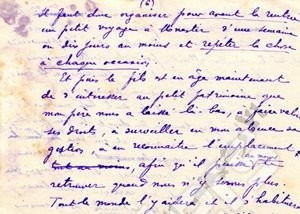 (6)
Il faut donc organiser pour avant la rentrée
un petit voyage à Monastir d'une semaine
ou dix jours au moins et répéter la chose
à chaque occasion.
Et puis le fils est en âge maintenant
de s'intéresser au petit patrimoine que
mon père nous a laissé là-bas, à faire valoir
ses droits, à surveiller en mon absence sa
gestion, à en reconnaître l'emplacement
au moins, afin qu'il puisse
retrouver quand nous n'y serons plus.
Tout le monde l'y aidera et il s'habituera